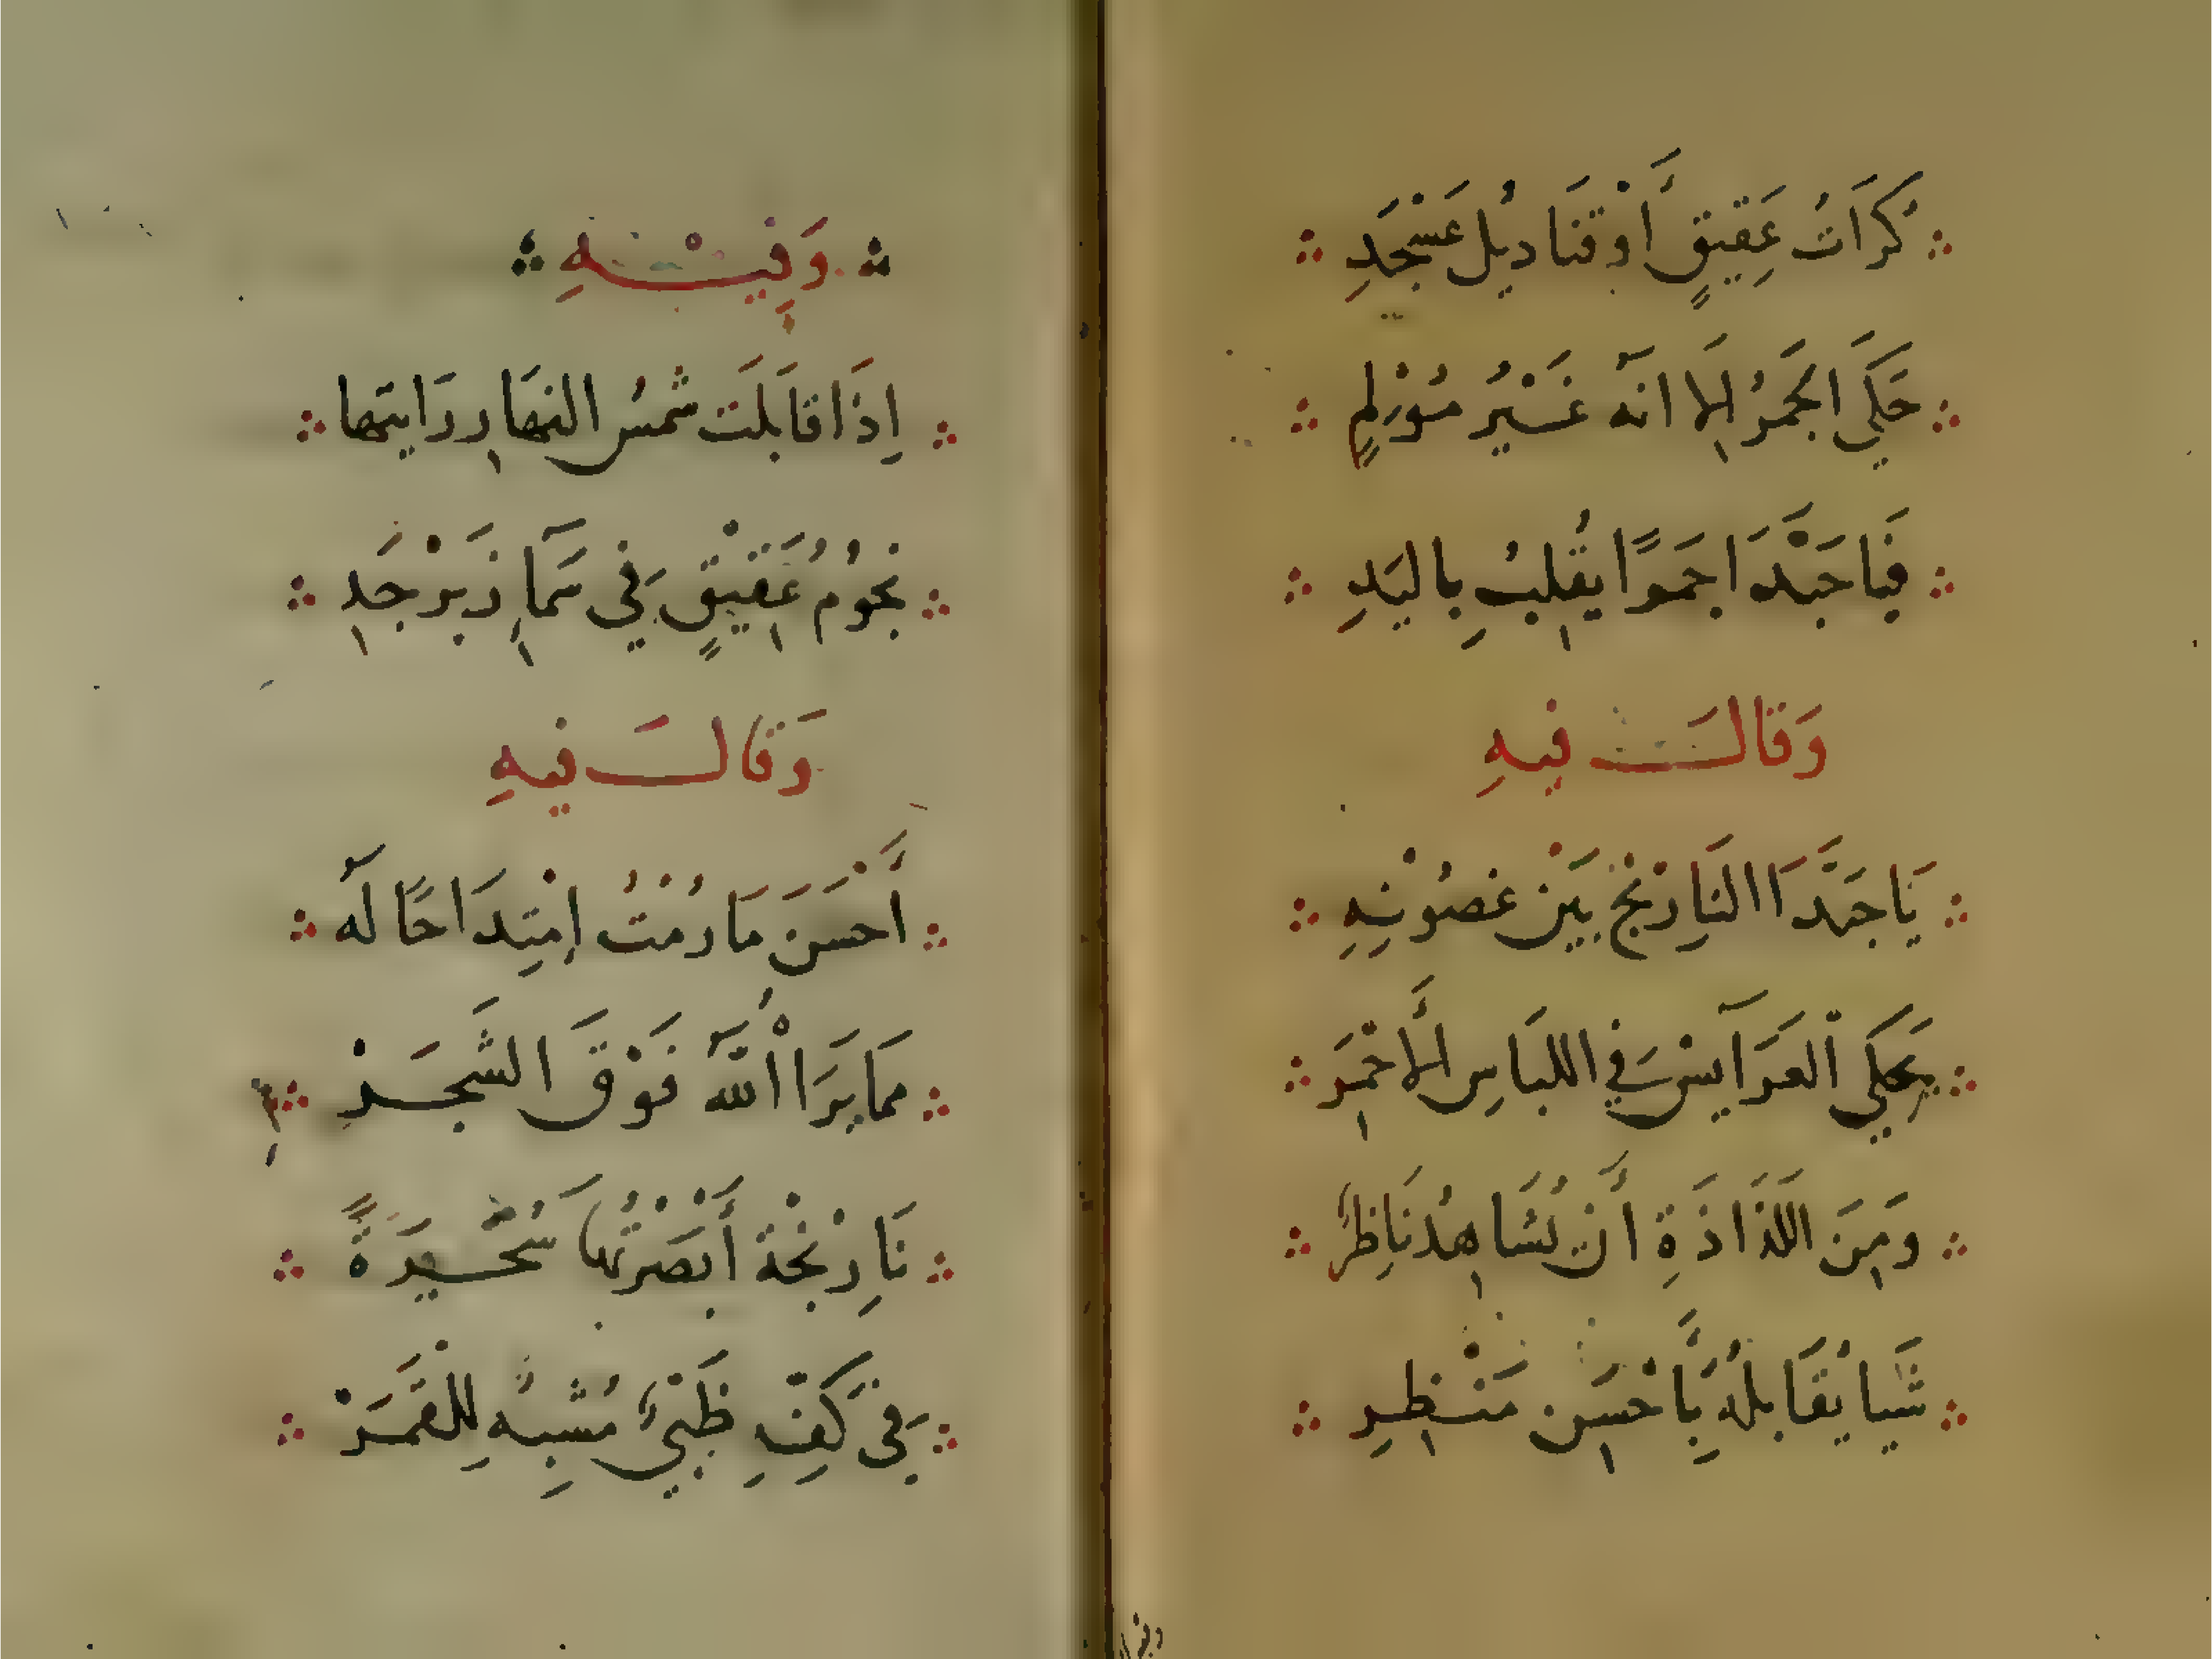 كُرَاتُ عَقِيقٍ أَوْ قَنَادِيْلِ عَسْجَدِ
حَكَي الجَمرُ اِلا انه غَيْرُ مُوْلِمٍ
فَيا حَبَّدَا جَمرًا يقلبُ بِاليَدِ
وَقَالَت فِيهِ
يَا حَبَّدَا النَارِنْجُ بَيْن غصُونِهِ
يَحكي العَرَايسْ فِي اللبَاسِ الأَحْمَرِ
وَمِنَ اللذَاذَةِ أَنْ تُشَاهِدُ نَاظِرٌ
شَيا يُقَابلهُ بِأَحْسَن مَنْظِرِ
وفي
وَفِيْهِ
اِذَا قَابَلَت شَمسُ النهَارِ رَايتها
نجُومُ عَقِيْقٍ فِي سَمَآءِ زَبَرْجَدِ
وَقَالَ فِيهِ
أَحْسَنَ مَا رُمْتُ إمْتِدَاحًا لَه
مَمَا بَرَا أْللّه فَوْقَ الشَجَرْ
نَارِنْجة أَبْصَرْتُهَا سُحَيرَةً
فِي كَفِّ ظَبْيٍ مُشبِهٍ لِلْقَمَرْ